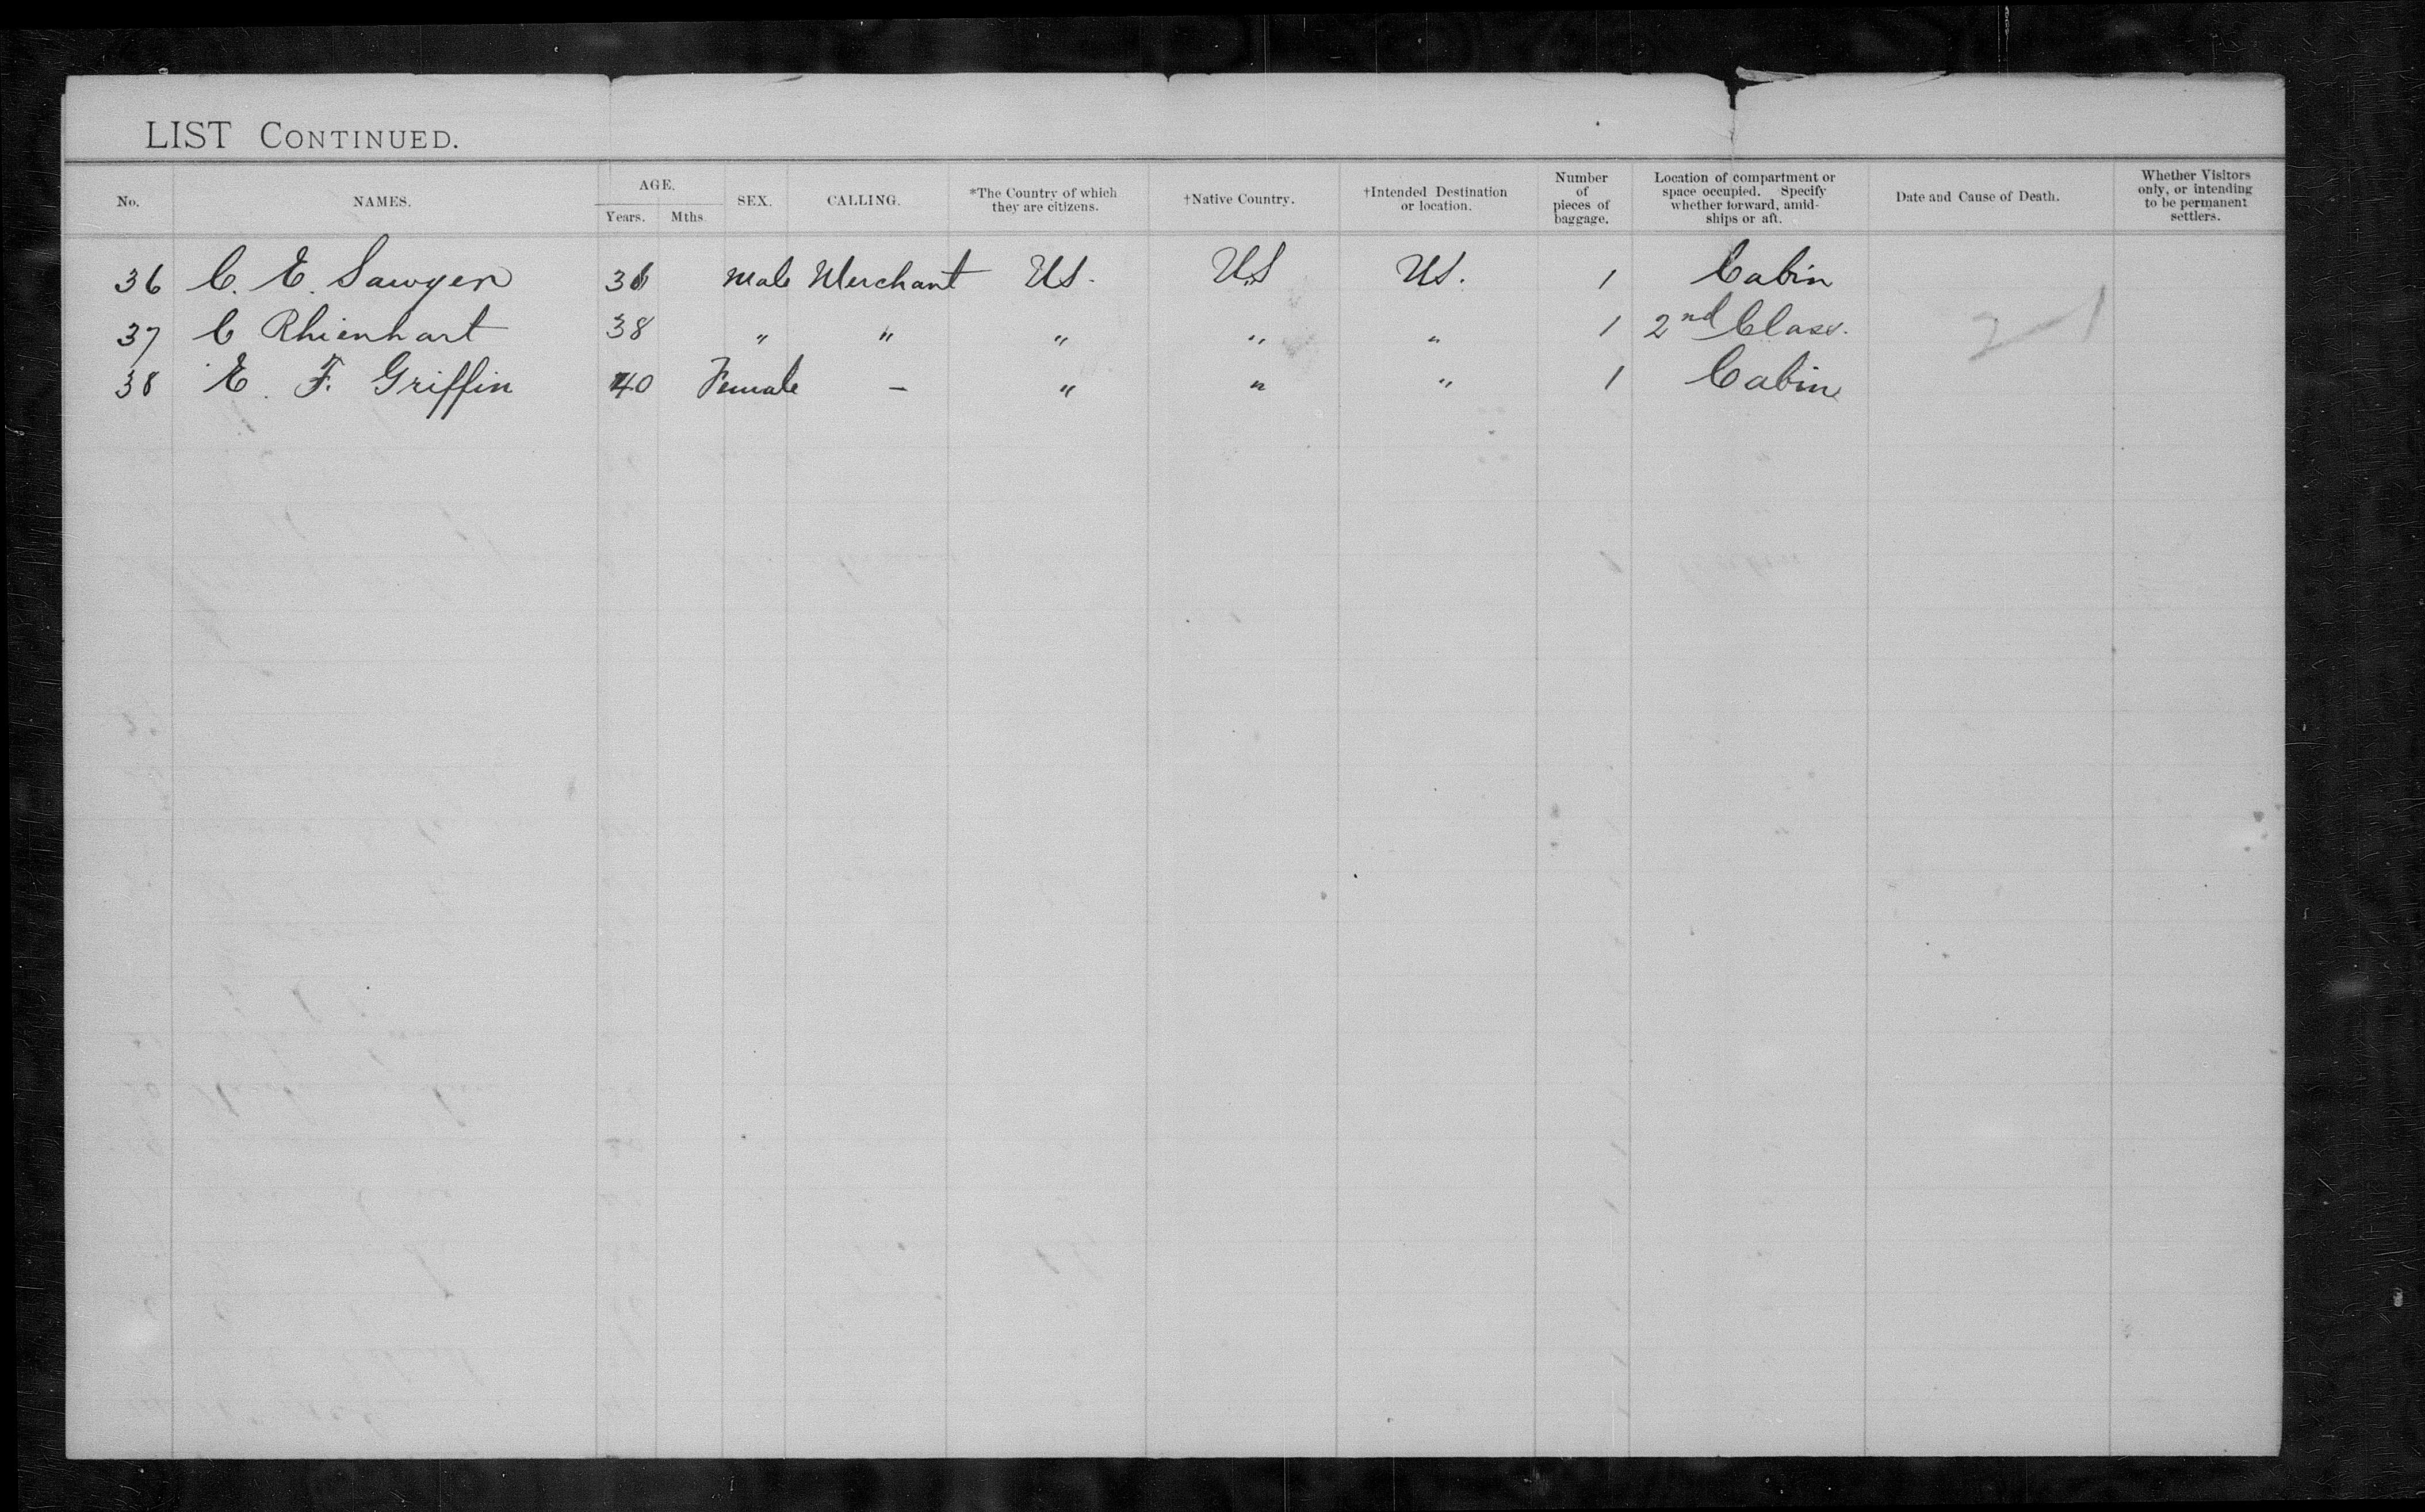 LIST CONTINUED.
No. NAMES. AGE. Years. Mths. SEX. CALLING. *The Country of which they are citizens. †Native Country. †Intended Destination or location. Number of pieces of baggage. Location of compartment or space occupied. Specify whether forward, amidships or aft. Date and Cause of Death. Whether Visitors only, or intending to be permanent settlers.
36 C. E. Sawyer male Merchant US. US US. 1 Cabin
37 C Rhienhart 38 " " " " " 1 2nd Class.
38 E. F. Griffin 40 Female – " " " 1 Cabin
2 – 1